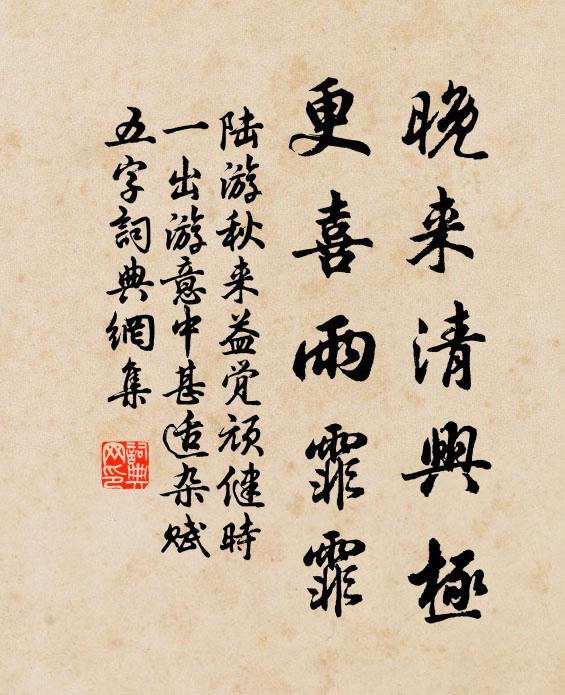 晚来清興極
更喜雨霏霏
陆游秋来益觉顽健时
一出游意中甚适杂赋
五字詞典網集
詞典网印